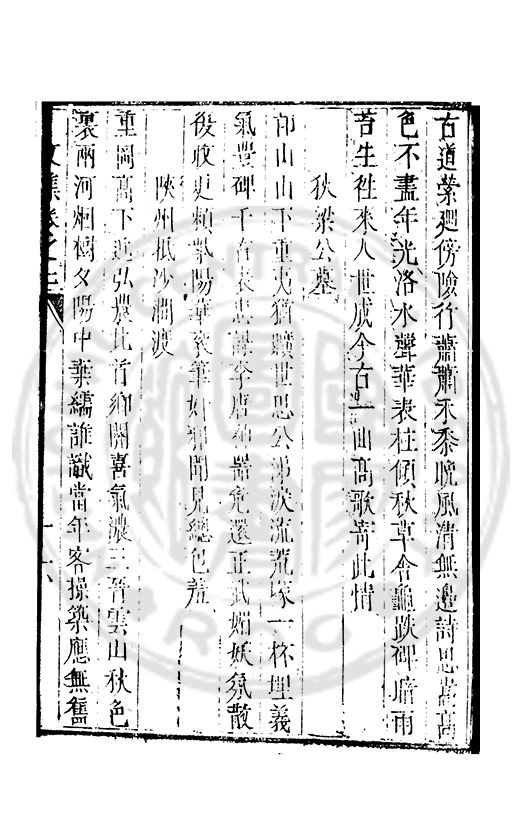 古道縈廻傍險行蕭蕭禾黍晩風清無邊詩思嵩高
色不盡年光洛水聲華表柱傾秋草合龜趺碑暗雨
苔生往來人世成今古一曲高歌寄此情
狄梁公墓
邙山山下重夷猶曠世思公涕淚流荒塚一抔埋義
氣豐碑千古表忠謀李唐神器兂還正武媚妖氛散
後收更頼勲陽華袞筆奸邪聞見總包羞
陜州抵沙澗渡
重岡高下近弘農此首鄉關喜氣濃三晉雲山秋色
裏兩河烟樹夕陽中葉繻誰識當年客操築應無舊
文集卷之三
十六